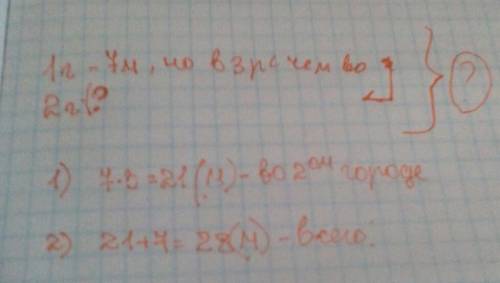 1г - 7м, но в 3 р < чем во
2г - ?
?
1) 7·3=21(м) - во 2ом городе
2) 21+7=28(м) - всего.